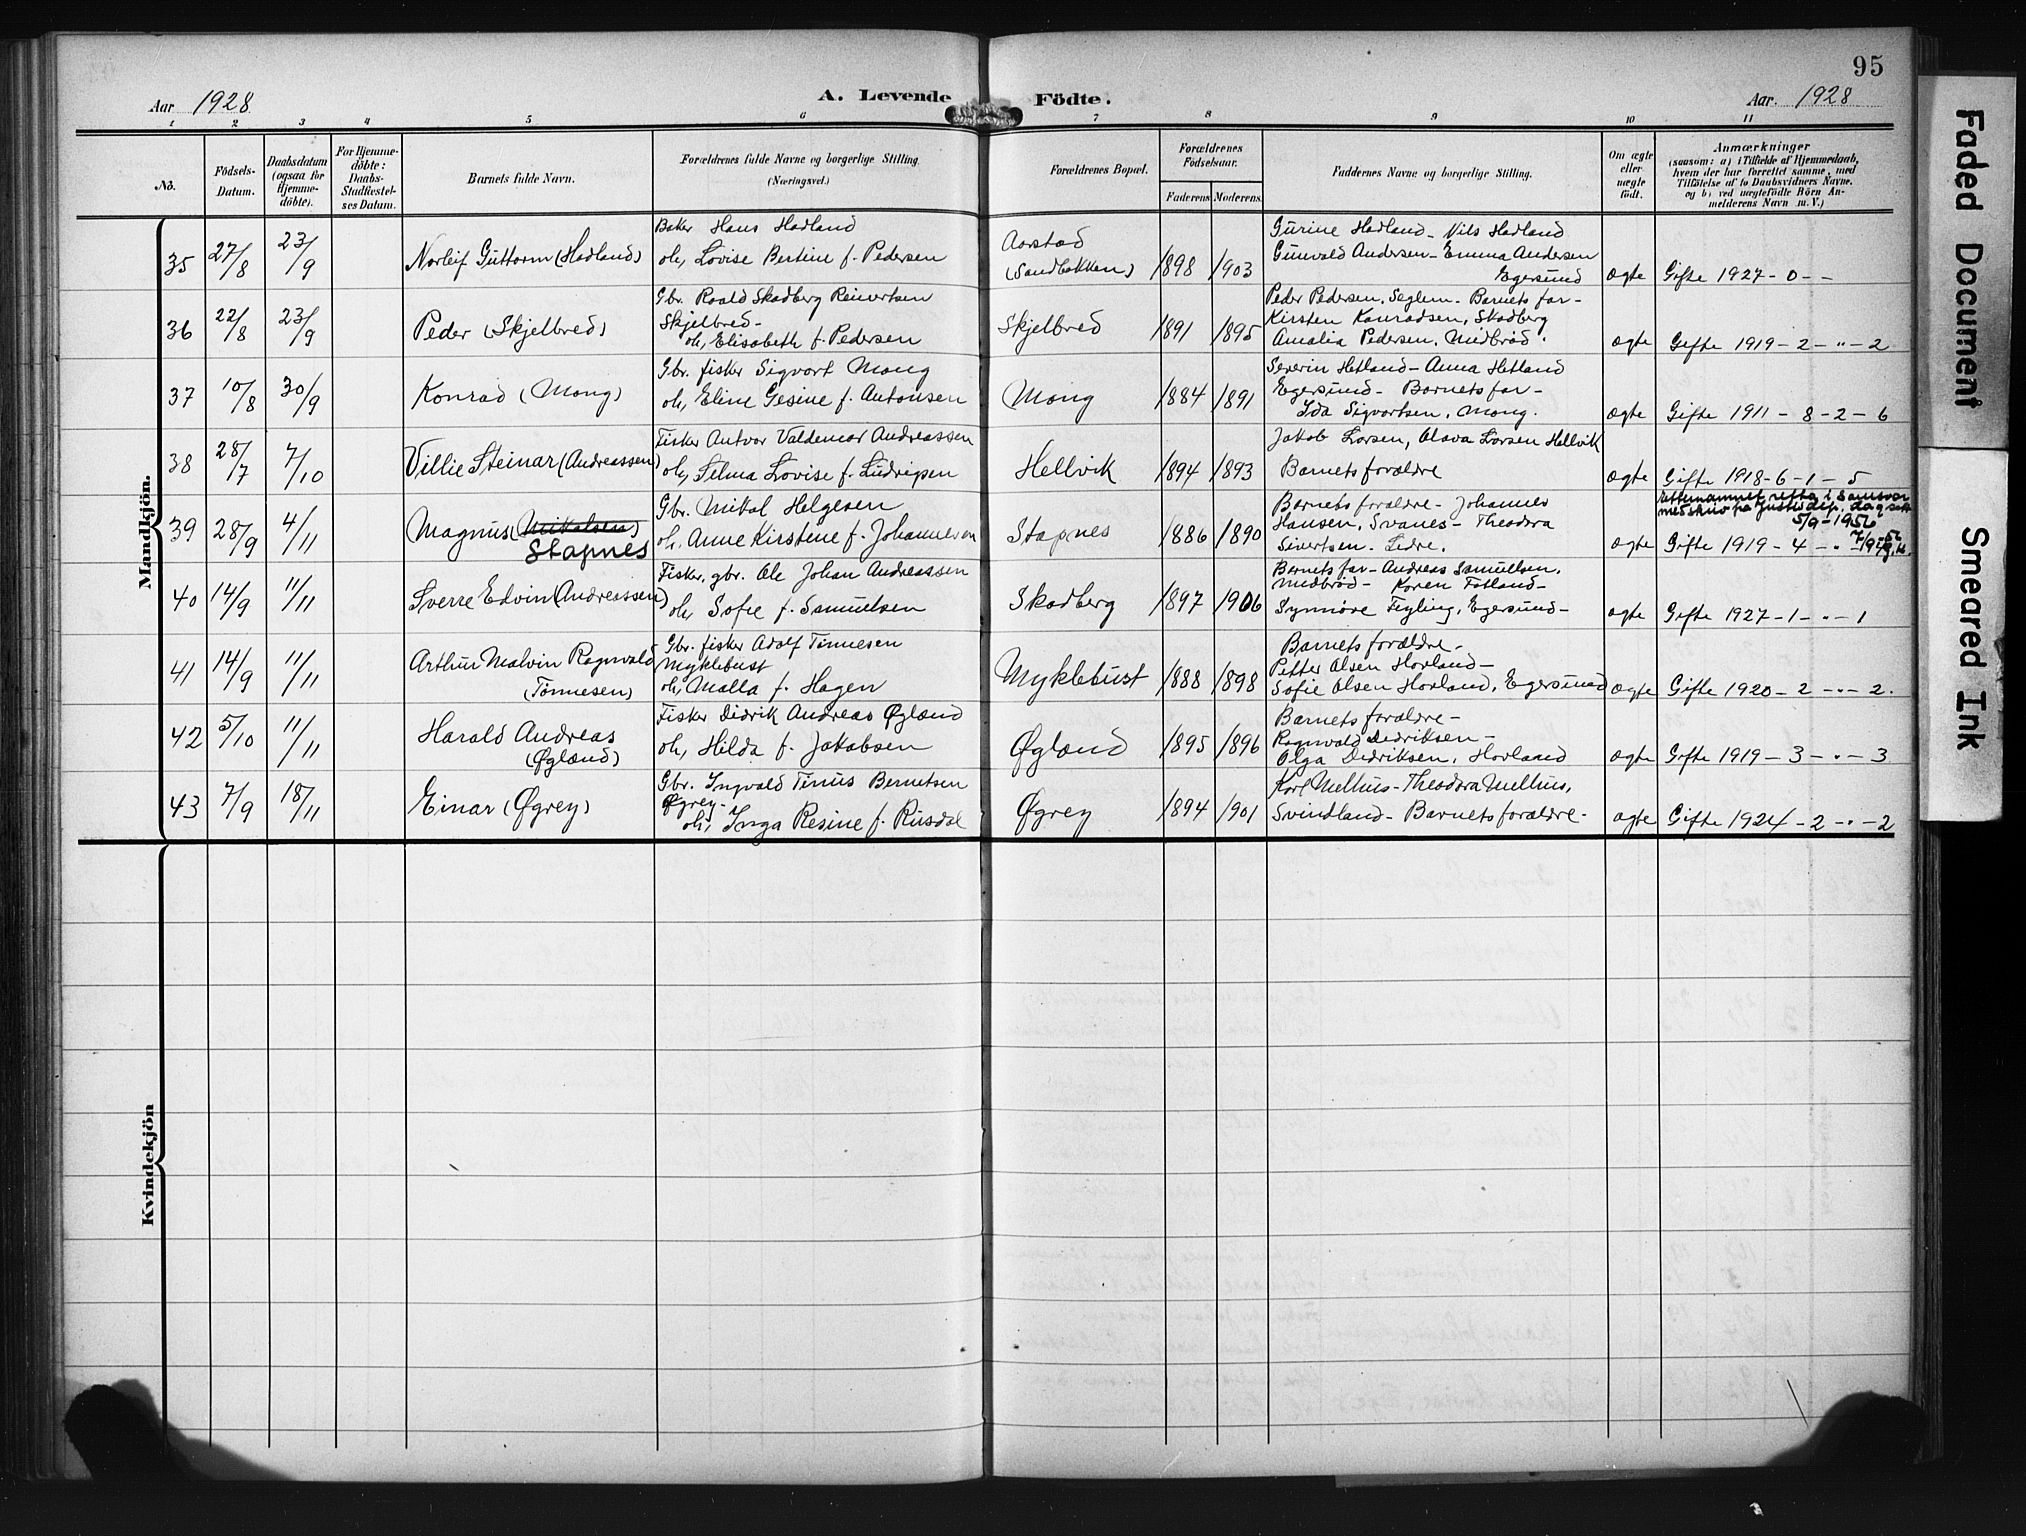 95
Aar 1928
A. Levende
Födte.
Aar. 1928
1 2 3 4 5 6 7 8 9 10 11
No.
Födsels-
Datum.
Daabsdatum
(ogsaa for
Hjemme-
döbte).
For Hjemme-
döbte:
Daabs-
Stadfæstel-
ses Datum.
Barnets fulde Navn.
Forældrenes fulde Navne og borgerlige Stilling.
(Næringsvei.)
Forældrenes Bopæl.
Forældrenes
Födselsaar.
Faderens Moderens.
Faddernes Navne og borgerlige Stilling.
Om ægte
eller
uægte
födt.
Anmærkninger
(saasom: a) i Tilfælde af Hjemmedaab,
hvem der har forrettet samme, med
Tilföielse af to Daabsvidners Navne,
og b) ved uægtefödte Börn An-
melderens Navn m. V.)
Mandkjön.
35
27/8
23/9
Norleif Guttorm (Hadland)
Baker Hans Hadland
oh, Lovise Bertine f. Pedersen
Aarstad
(Sandbakken)
1898
1903
Gurine Hadland - Nils Hadland
Gunvald Andersen - Emma Andersen
Egersund
ægte
Gifte 1927 - 0 - -
36
22/8
23/9
Peder (Skjelbred)
Gbr. Roald Skadberg Reinertsen
Skjelbred -
oh, Elisabeth f. Pedersen
Skjelbred
1891
1895
Peder Pedersen, Seglem - Barnets far -
Kirsten Konradsen, Skadberg
Amalia Pedersen, Midbrød.
ægte
Gifte 1919 - 2 - " - 2
37
10/8
30/9
Konrad (Mong)
Gbr. fisker Sigvart Mong
oh, Eline Gesine f. Antonsen
Mong
1884
1891
Severin Hetland - Anna Hetland
Egersund - Barnets far -
Ida Sigvartsen, Mong.
ægte
Gifte 1911 - 8 - 2 - 6
38
28/7
7/10
Villie Steinar (Andreassen)
Fisker Antvor Valdemar Andreassen
oh, Selma Lovise f. Ludvigsen
Hellvik
1894
1893
Jakob Larsen, Olava Larsen Hellvik
Barnets forældre
ægte
Gifte 1918 - 6 - 1 - 5
39
28/9
4/11
Magnus (Mikalsen)
Stapnes
Gbr. Mikal Helgesen
oh, Anne Kirstine f. Johannesen
Stapnes
1886
1890
Barnets forældre - Johannes
Hansen, Svanes - Theodora
Sivertsen - Lædre.
ægte
Etternamnet retta i samsvar
med skriv frå Justisdep. dagsett
5/9 - 1956
7/9-56
Gifte 1919 - 4 -
40
14/9
11/11
Sverre Edvin (Andreassen)
Fisker, gbr. Ole Johan Andreassen
oh, Sofie f. Samuelsen
Skadberg
1897
1906
Barnets far - Andreas Samuelsen,
Midbrød - Karen Tatland -
Synnøve Feyling, Egersund -
ægte
Gifte 1927 - 1 - " - 1
41
14/9
11/11
Arthur Malvin Ragnvald
(Tønnesen)
Gbr. fisker Adolf Tønnesen
Myklebust
oh, Malla f. Hagen
Myklebust
1888
1898
Barnets forældre -
Petter Olsen Hovland -
Sofie Olsen Hovland, Egersund
ægte
Gifte 1920 - 2 - " - 2.
42
5/10
11/11
Harald Andreas
(Øglænd)
Fisker Didrik Andreas Øglænd
oh, Hilda f. Jakobsen
Øglænd
1895
1896
Barnets forældre -
Ragnvald Dedriksen -
Olga Dedriksen, Hovland
ægte
Gifte 1919 - 3 - " - 3
43
7/9
18/11
Einar (Øgrey)
Gbr. Ingvald Tinius Berntsen
Øgrey -
oh, Inga Resine f. Rusdal
Øgrey
1894
1901
Karl Mellhus - Theodora Mellhus,
Svindland - Barnets forældre -
ægte
Gifte 1924 - 2 - " - 2
Kvindekjön
Faded Document
Smeared Ink